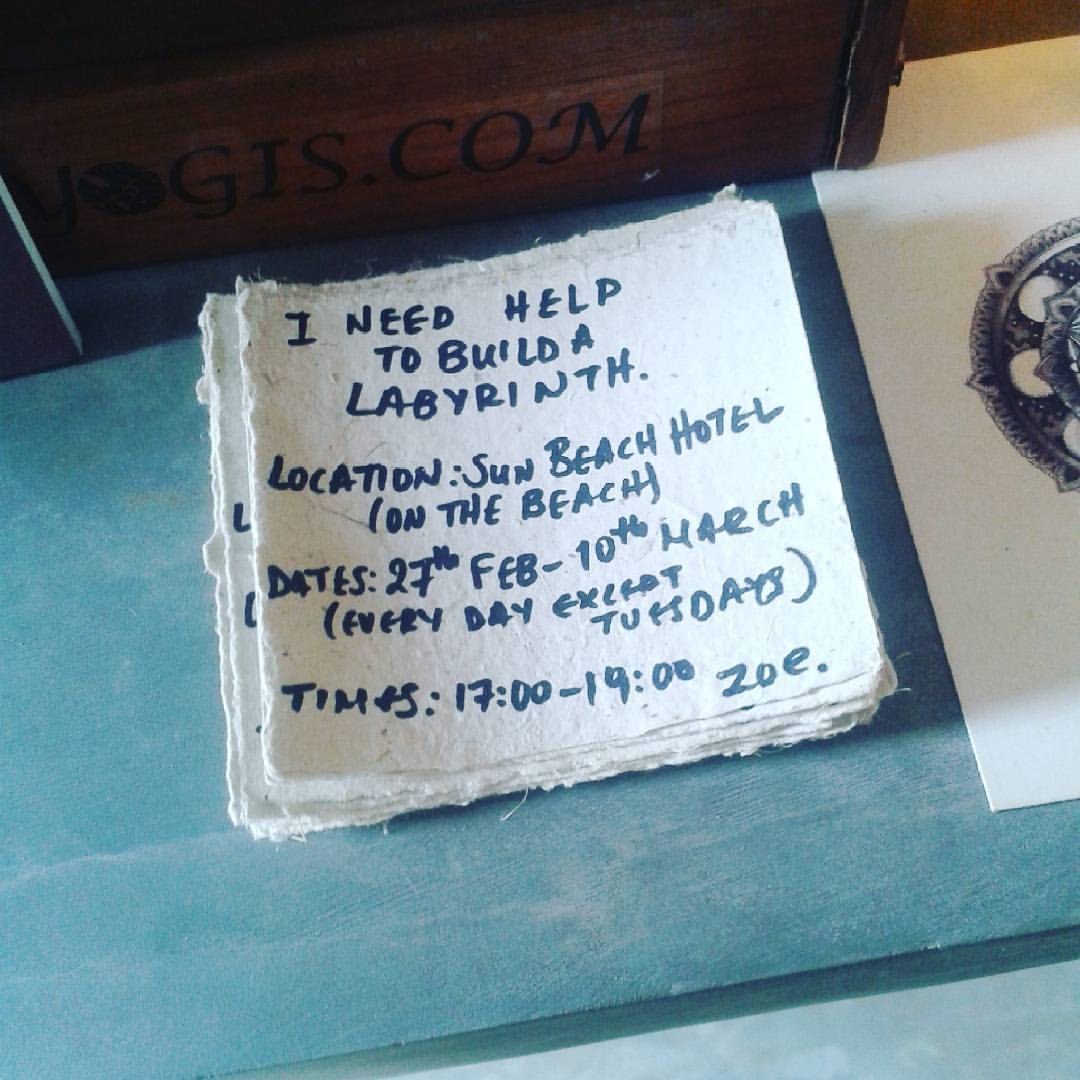 YOGIS.COM
I NEED HELP
TO BUILD A
LABYRINTH.
LOCATION: SUN BEACH HOTEL
(ON THE BEACH)
DATES: 27th FEB - 10th MARCH
(EVERY DAY EXCEPT
TUESDAYS)
TIMES: 17:00-19:00 Zoe.